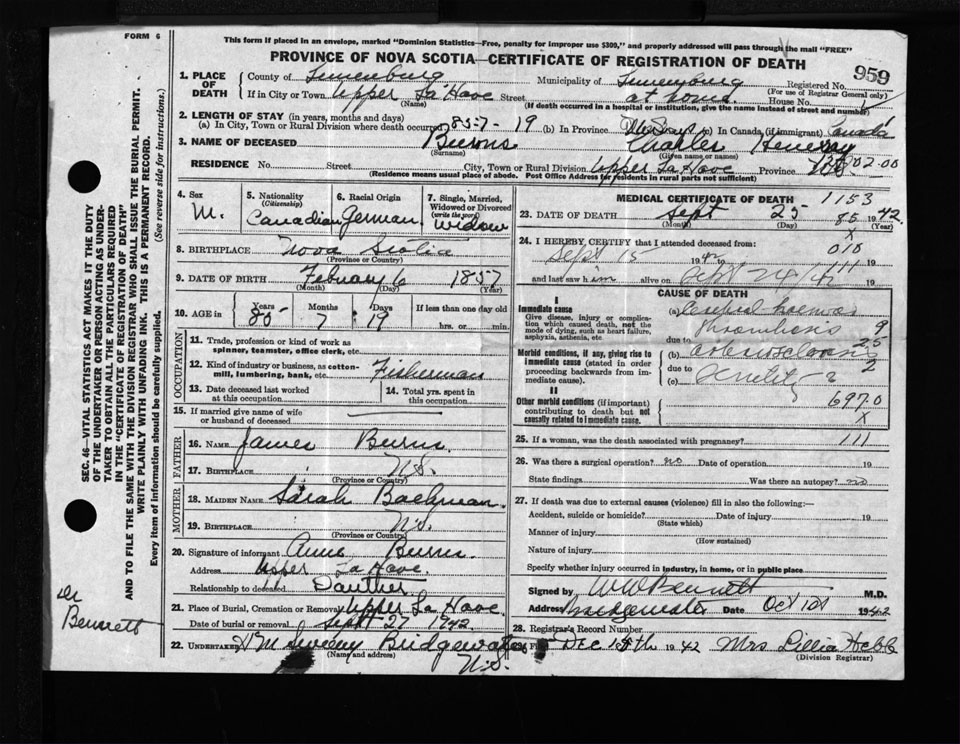 FORM 6
This form if placed in an envelope, marked "Dominion Statistics—Free, penalty for improper use $300," and properly addressed will pass through the mail "FREE"
PROVINCE OF NOVA SCOTIA—CERTIFICATE OF REGISTRATION OF DEATH
959
1. PLACE OF DEATH
County of Lunenburg Municipality of Lunenburg Registered No.
(For use of Registrar General only)
If in City or Town Upper La Have Street at home. House No.
(Name) (If death occurred in a hospital or institution, give the name instead of street and number)
2. LENGTH OF STAY (in years, months and days)
(a) In City, Town or Rural Division where death occurred 85-7-19 (b) In Province (c) In Canada (if immigrant) Canada
3. NAME OF DECEASED Burns Charles Henery
(Surname) (Given name or names)
RESIDENCE No. Street City, Town or Rural Division Upper La Have Province N.S.
(Residence means usual place of abode. Post Office Address for residents in rural parts not sufficient)
4. Sex M.
5. Nationality (Citizenship) Canadian
6. Racial Origin German
7. Single, Married, Widowed or Divorced (write the word) widow
8. BIRTHPLACE Nova Scotia
(Province or Country)
9. DATE OF BIRTH Febuary 6 1857
(Month) (Day) (Year)
10. AGE Years 85 Months 7 Days 19 If less than one day old
hrs. or min.
OCCUPATION
11. Trade, profession or kind of work as spinner, teamster, office clerk, etc.
12. Kind of industry or business, as cotton-mill, lumbering, bank, etc. Fisherman
13. Date deceased last worked at this occupation
14. Total yrs. spent in this occupation
15. If married give name of wife or husband of deceased
FATHER
16. NAME James Burns
17. BIRTHPLACE N.S.
(Province or Country)
MOTHER
18. MAIDEN NAME Sarah Bachman
19. BIRTHPLACE N.S.
(Province or Country)
20. Signature of informant Anne Burns
Address Upper La Have
Relationship to deceased Dauther
21. Place of Burial, Cremation or Removal Upper La Have
Date of burial or removal Sept 27 1942.
22. UNDERTAKER Bridgewater N.S.
(Name and address)
MEDICAL CERTIFICATE OF DEATH 1153
23. DATE OF DEATH Sept 25 1942
(Month) (Day) (Year)
85
X
24. I HEREBY CERTIFY that I attended deceased from:
010
Sept 15 1942 to 19
111
and last saw him alive on Sept 24/42 19
CAUSE OF DEATH
I
Immediate cause
Give disease, injury or complication which caused death, not the mode of dying, such as heart failure, asphyxia, asthenia, etc.
(a) thrombosis 9
due to 25
Morbid conditions, if any, giving rise to immediate cause (stated in order proceeding backwards from immediate cause).
(b) 2
due to
(c) Senility
II
Other morbid conditions (if important) contributing to death but not causally related to immediate cause.
6970
X
25. If a woman, was the death associated with pregnancy? 111
26. Was there a surgical operation? no Date of operation 19
State findings Was there an autopsy? no
27. If death was due to external causes (violence) fill in also the following:—
Accident, suicide or homicide? Date of injury 19
(State which)
Manner of injury
(How sustained)
Nature of injury
Specify whether injury occurred in industry, in home, or in public place
Signed by W W Bennett M.D.
Address Bridgewater Date Oct 1942
28. Registrar's Record Number
Dec 1942 Mrs Lillia Hebb
(Division Registrar)
SEC. 46—VITAL STATISTICS ACT MAKES IT THE DUTY
OF THE UNDERTAKER OR PERSON ACTING AS UNDERTAKER TO OBTAIN ALL THE PARTICULARS REQUIRED
IN THE "CERTIFICATE OF REGISTRATION OF DEATH"
AND TO FILE THE SAME WITH THE DIVISION REGISTRAR WHO SHALL ISSUE THE BURIAL PERMIT.
WRITE PLAINLY WITH UNFADING INK. THIS IS A PERMANENT RECORD.
Every item of information should be carefully supplied. (See reverse side for instructions.)
Dr
Bennett